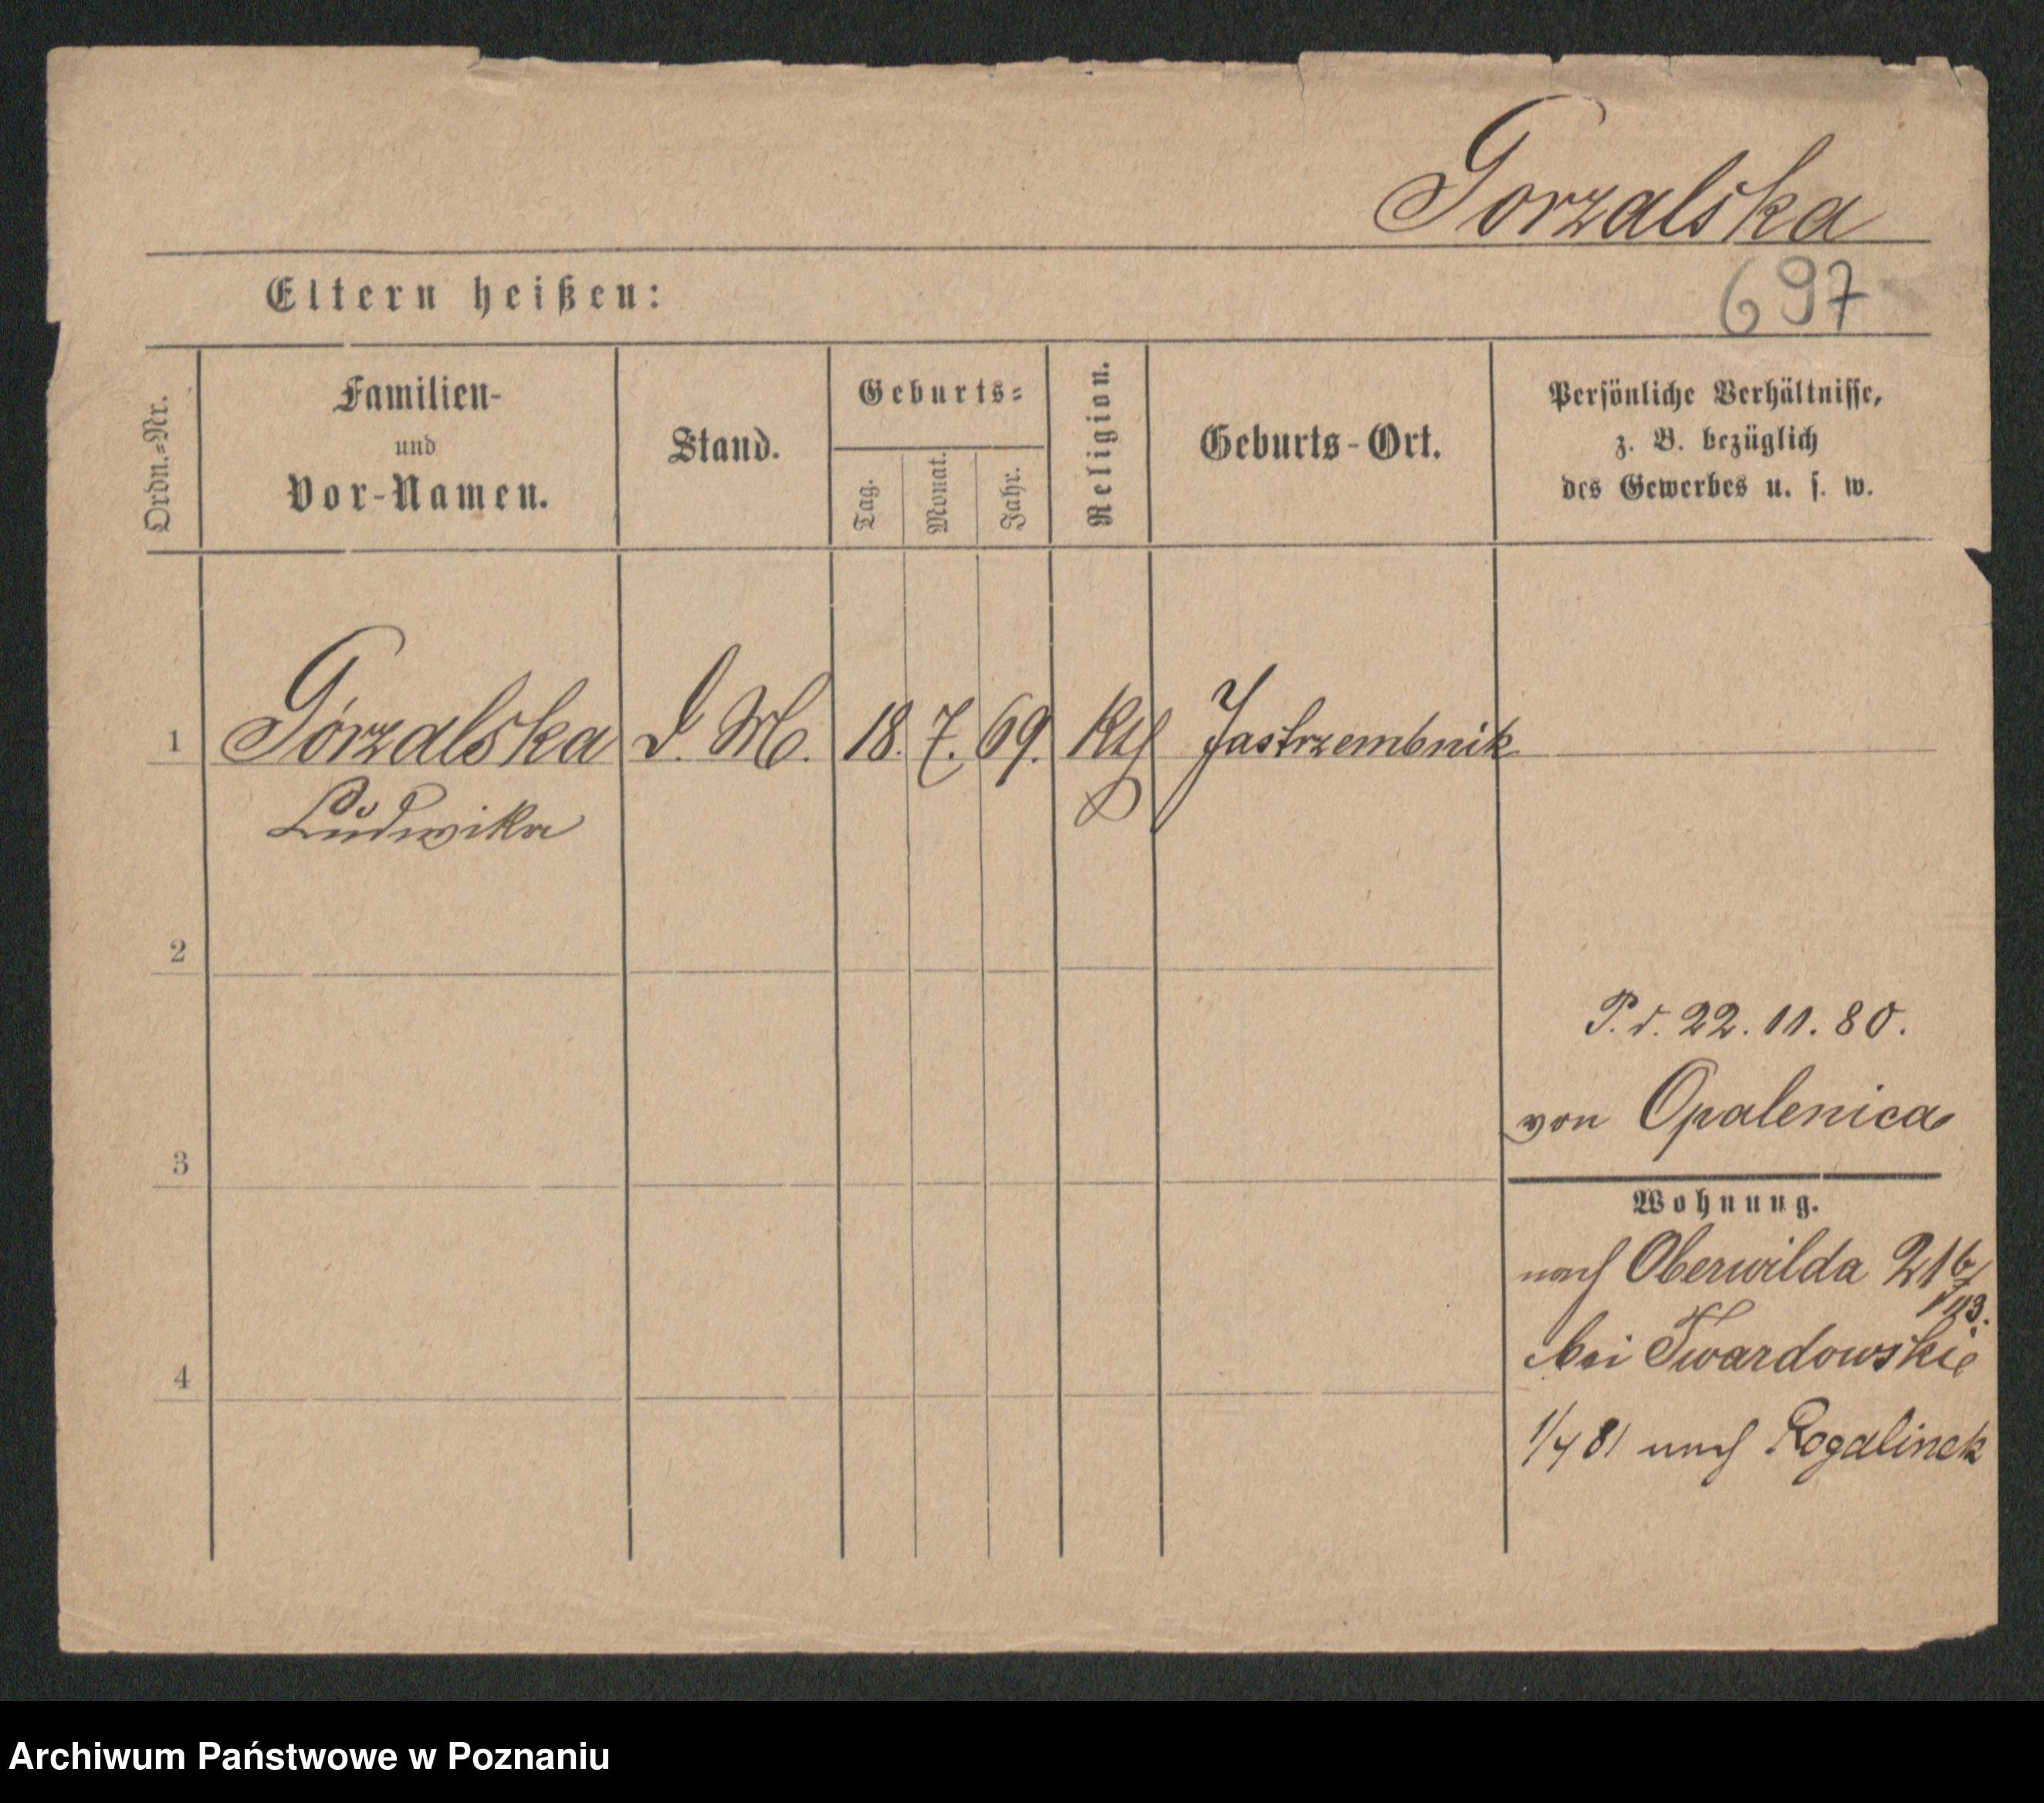 Gorzalska
697
Eltern heißen:
Ordn.-Nr.
Familien-
und
Vor-Namen.
Stand.
Geburts-
Tag.
Monat.
Jahr.
Religion.
Geburts-Ort.
Persönliche Verhältnisse,
z. B. bezüglich
des Gewerbes u. s. w.
1 Górzalska D. M. 18. 7. 69. Kth Jastrzembnik
Ludwika
2
P. d. 22. 11. 80.
von Opalenica
3
Wohnung.
nach Oberwilda 21
bei Twardowski
4
1/4 81 nach Rogalinek
Archiwum Państwowe w Poznaniu